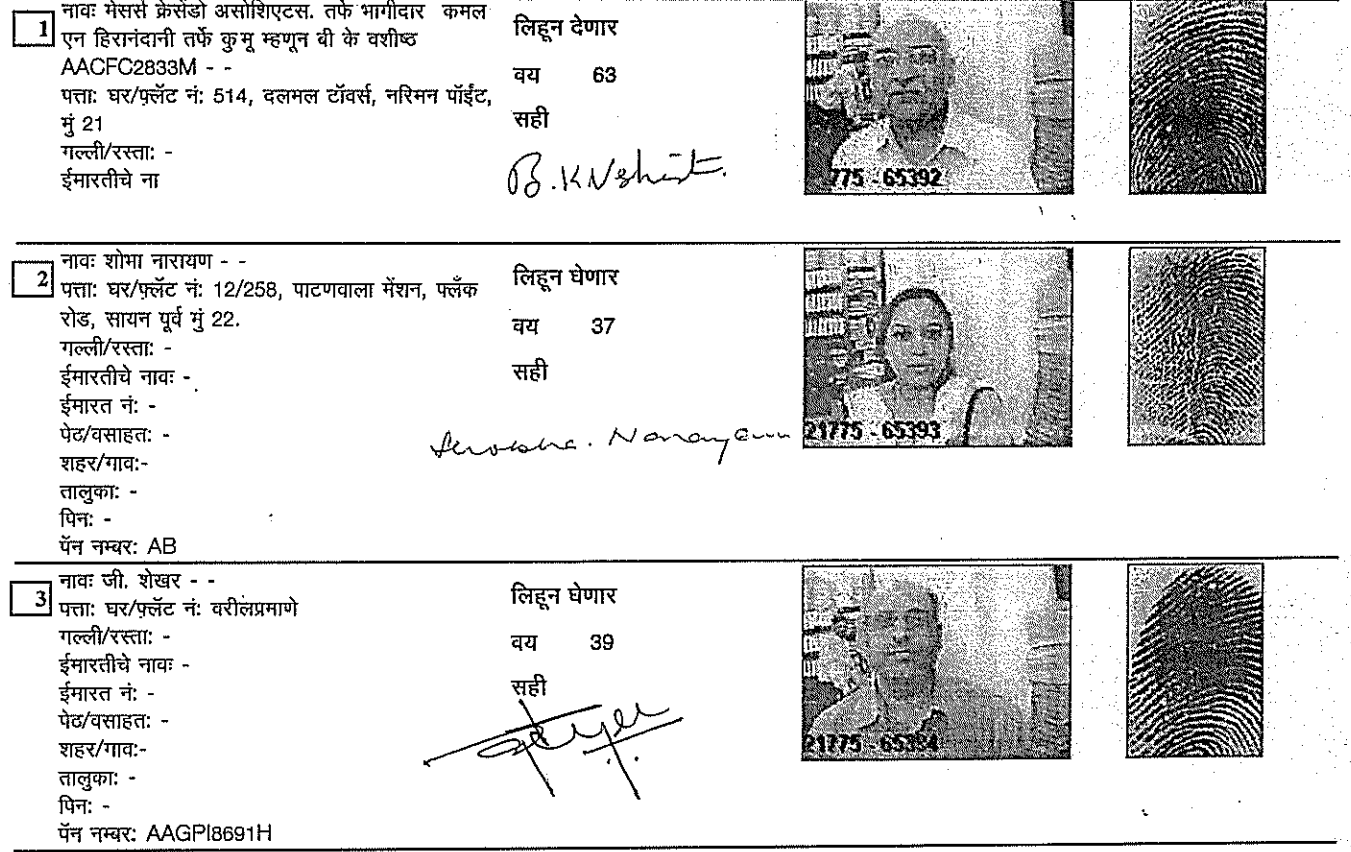 1 नावः मेसर्स क्रेसेंडो असोशिएटस. तर्फे भागीदार कमल
एन हिरानंदानी तर्फे कुमू म्हणून बी के वशीष्ठ
AACFC2833M - -
पत्ताः घर/फ़्लॅट नं: 514, दलमल टॉवर्स, नरिमन पॉईंट,
मुं 21
गल्ली/रस्ताः -
ईमारतीचे ना
लिहून देणार
वय 63
सही
775 - 65392
2 नावः शोभा नारायण - -
पत्ताः घर/फ़्लॅट नं: 12/258, पाटणवाला मेंशन, फ्लँक
रोड, सायन पूर्व मुं 22.
गल्ली/रस्ताः -
ईमारतीचे नावः -
ईमारत नं: -
पेठ/वसाहतः -
शहर/गावः-
तालुकाः -
पिनः -
पॅन नम्बरः AB
लिहून घेणार
वय 37
सही
Narayan
21775 - 65393
3 नावः जी. शेखर - -
पत्ताः घर/फ़्लॅट नं: वरीलप्रमाणे
गल्ली/रस्ताः -
ईमारतीचे नावः -
ईमारत नं: -
पेठ/वसाहतः -
शहर/गावः-
तालुकाः -
पिनः -
पॅन नम्बरः AAGPI8691H
लिहून घेणार
वय 39
सही
21775 - 65394